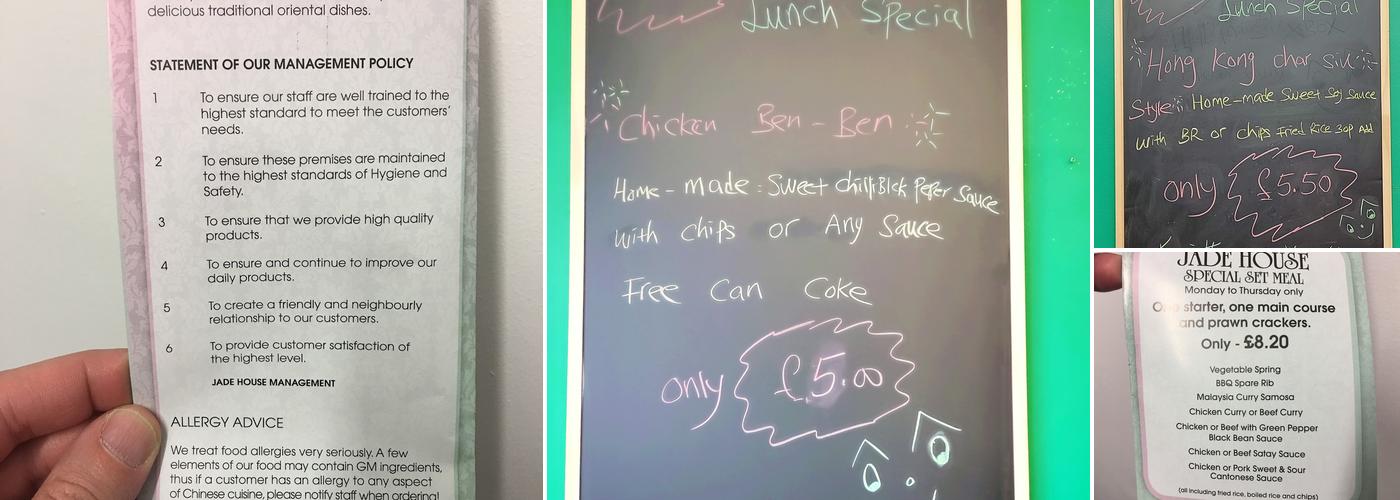 delicious traditional oriental dishes.
STATEMENT OF OUR MANAGEMENT POLICY
1 To ensure our staff are well trained to the
highest standard to meet the customers'
needs.
2 To ensure these premises are maintained
to the highest standards of Hygiene and
Safety.
3 To ensure that we provide high quality
products.
4 To ensure and continue to improve our
daily products.
5 To create a friendly and neighbourly
relationship to our customers.
6 To provide customer satisfaction of
the highest level.
JADE HOUSE MANAGEMENT
ALLERGY ADVICE
We treat food allergies very seriously. A few
elements of our food may contain GM ingredients,
thus if a customer has an allergy to any aspect
of Chinese cuisine, please notify staff when ordering!
Lunch Special
Chicken Ben-Ben
Home-made: Sweet chilli Blck Peper Sauce
With Chips or Any Sauce
Free Can Coke
only £5.00
Lunch Special
Hong Kong char siu
Style: Home-made Sweet Soy Sauce
With BR or chips Fried Rice 30p Add
only £5.50
JADE HOUSE
SPECIAL SET MEAL
Monday to Thursday only
One starter, one main course
and prawn crackers.
Only - £8.20
Vegetable Spring
BBQ Spare Rib
Malaysia Curry Samosa
Chicken Curry or Beef Curry
Chicken or Beef with Green Pepper
Black Bean Sauce
Chicken or Beef Satay Sauce
Chicken or Pork Sweet & Sour
Cantonese Sauce
(all including fried rice, boiled rice and chips)